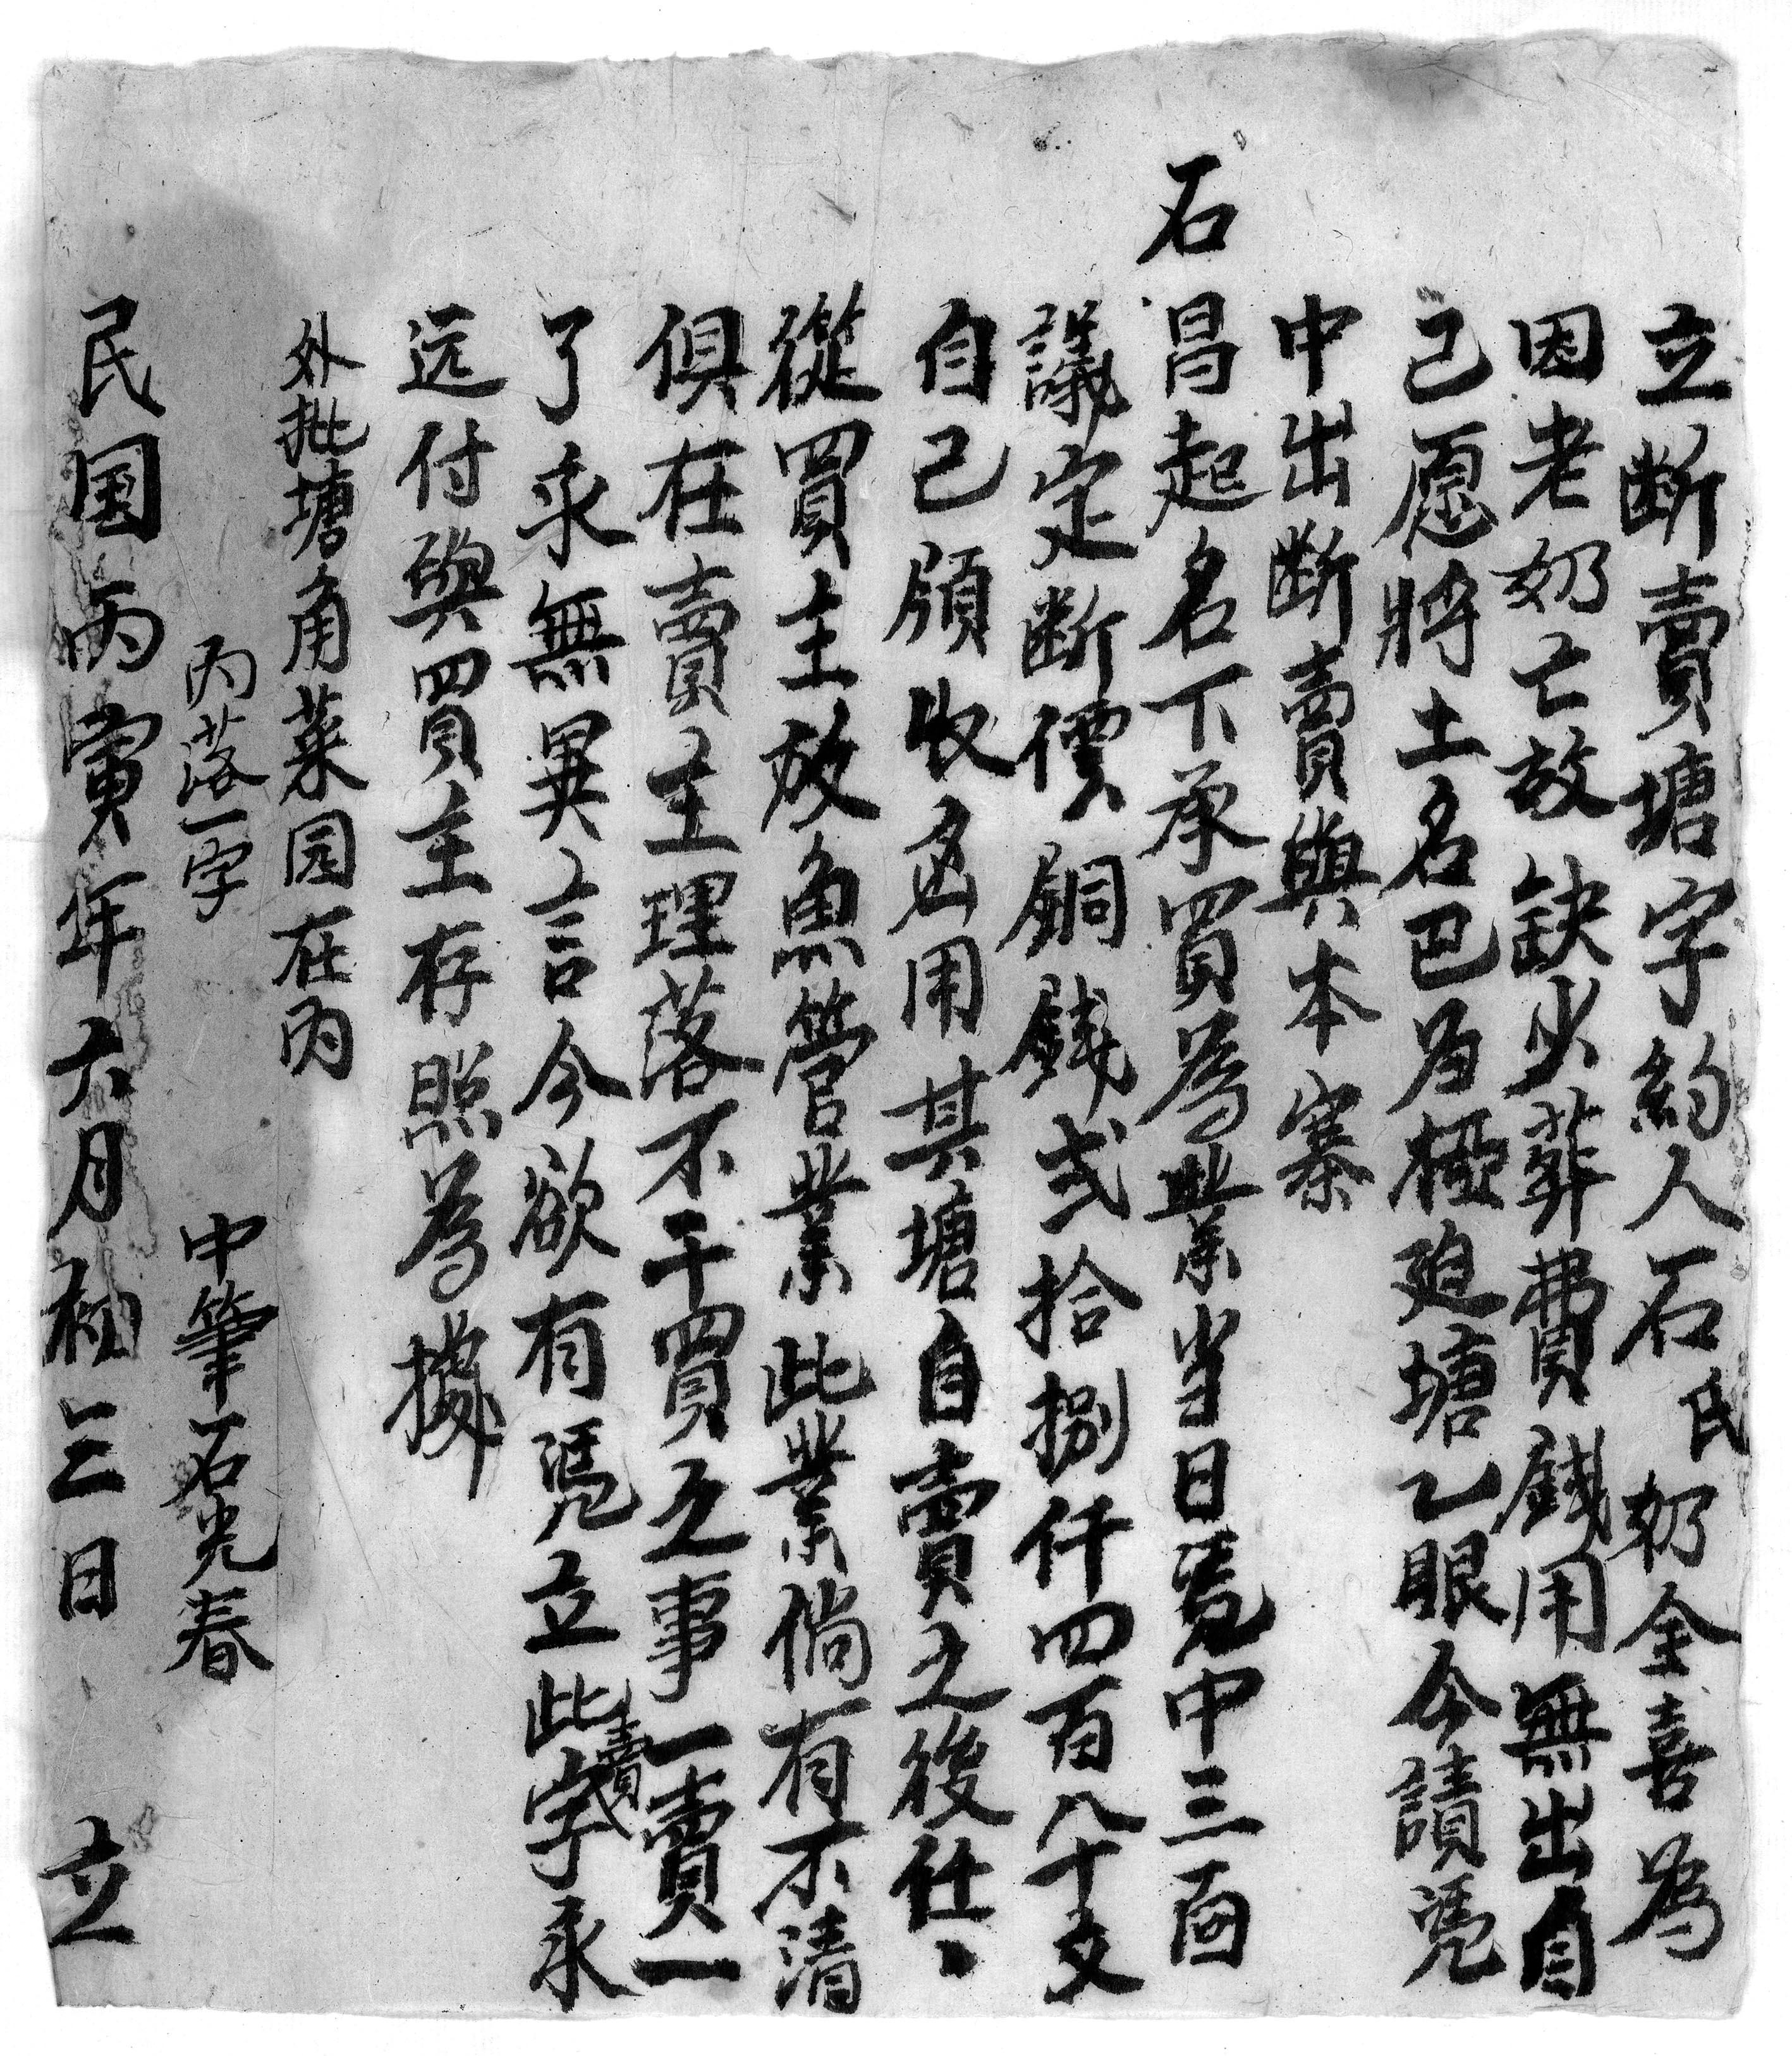 立断賣塘字約人石氏奶金喜為
因老奶亡故缺少葬費錢用無出自
己愿將土名巴为極廹塘乙眼今請凭
中出断賣與本寨
石昌起名下承買為業当日凭中三面
議定断價銅錢弍拾捌仟四百八十文
自己領收应用其塘自賣之後任、
從買主放魚管業此業倘有不清
俱在賣主理落不干買主之事一賣一
了永無異言今欲有凭立此賣字永
远付與買主存照為據
外批塘角菜园在内
内落一字
中筆石光春
民国丙寅年六月初三日 立